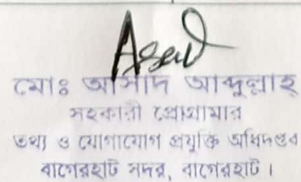 মোঃ আসাদ আব্দুল্লাহ্
সহকারী প্রোগ্রামার
তথ্য ও যোগাযোগ প্রযুক্তি অধিদপ্তর
বাগেরহাট সদর, বাগেরহাট।